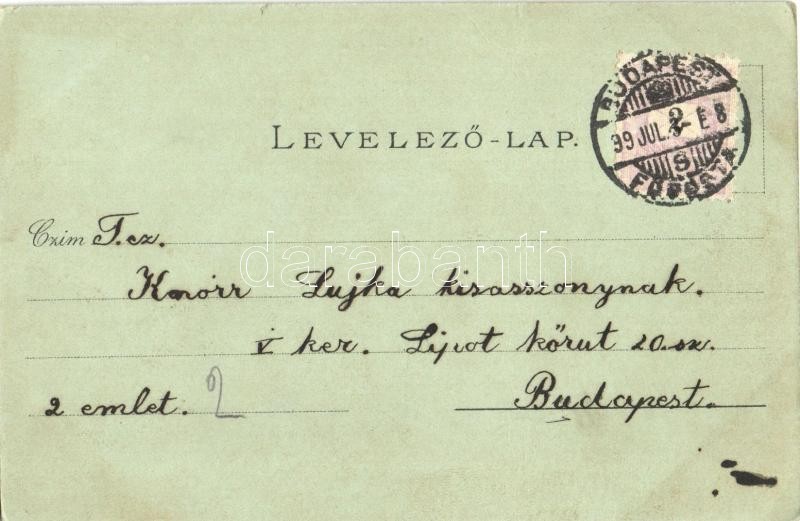 BUDAPEST
99 JUL. 3- E 8
S
FŐPOSTA
LEVELEZŐ-LAP.
Czim T. cz.
darabanth
Knorr Lujka kisasszonynak.
V ker. Lipot körut 20. sz.
2 emlet. 2
Budapest.